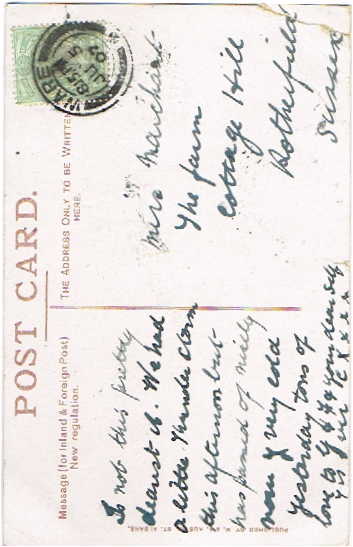 POST CARD.
Message (for Inland & Foreign Post)
New regulation.
THE ADDRESS ONLY TO BE WRITTEN
HERE.
WARE
8.15 PM
JU 5
Is not this pretty
dearest M. We had
a little thunder storm
this afternoon but
has turned of nicely
now & very cold
yesterday tons of
love to G & F & your dear self
Miss Marchant
The farm
Cottage Hill
Rotherfield
Sussex
PUBLISHED BY
ST. ALBANS.